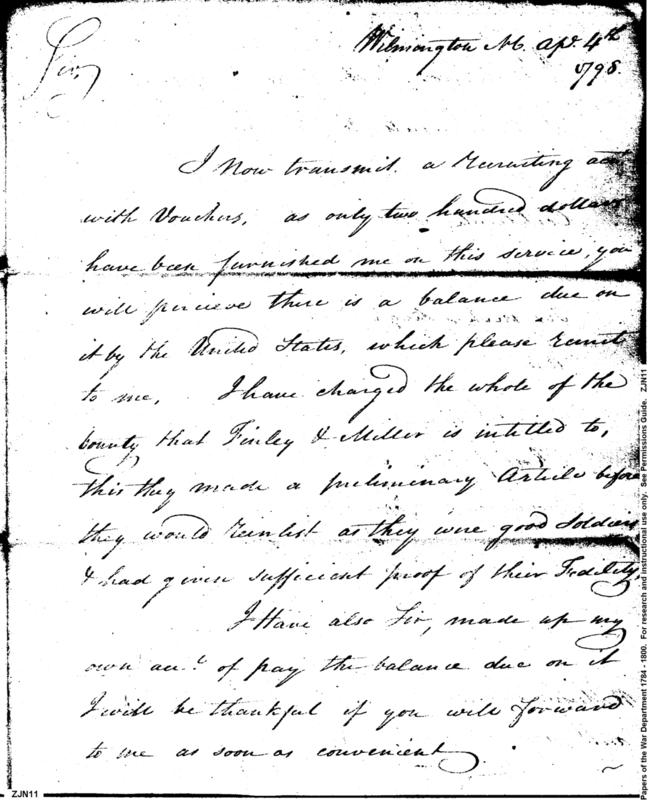 Wilmington NC Apr. 4th
1798.
Sir,
I Now transmit. a recruiting acct
with Vouchers, as only two hundred dollars
have been furnished me on this service, you
will percieve there is a balance due on
it by the United States, which please remit
to me, I have charged the whole of the
bounty that Finley & Miller is intitled to,
this they made a preliminary Article before
they would reenlist as they were good Soldiers
& had given sufficient proof of their Fedility,
I Have also Sir, made up my
own acct. of pay the balance due on it
I will be thankful if you will forward
to me as soon as convenient.
ZJN11
Papers of the War Department 1784 - 1800. For research and instructional use only. See Permissions Guide. ZJN11